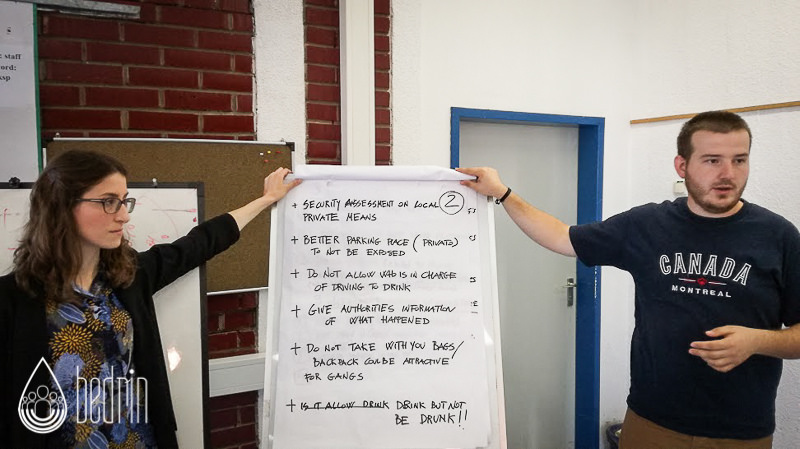 : staff
ord:
ksp
2
+ SECURITY ASSESSMENT ON LOCAL
PRIVATE MEANS
+ BETTER PARKING PLACE (PRIVATE)
TO NOT BE EXPOSED
+ DO NOT ALLOW WHO IS IN CHARGE
OF DRIVING TO DRINK
+ GIVE AUTHORITIES INFORMATION
OF WHAT HAPPENED
+ DO NOT TAKE WITH YOU BAGS/
BACKPACK COULD BE ATTRACTIVE
FOR GANGS
+ IS IT ALLOW DRINK DRINK BUT NOT
BE DRUNK!!
CANADA
MONTREAL
bedrin